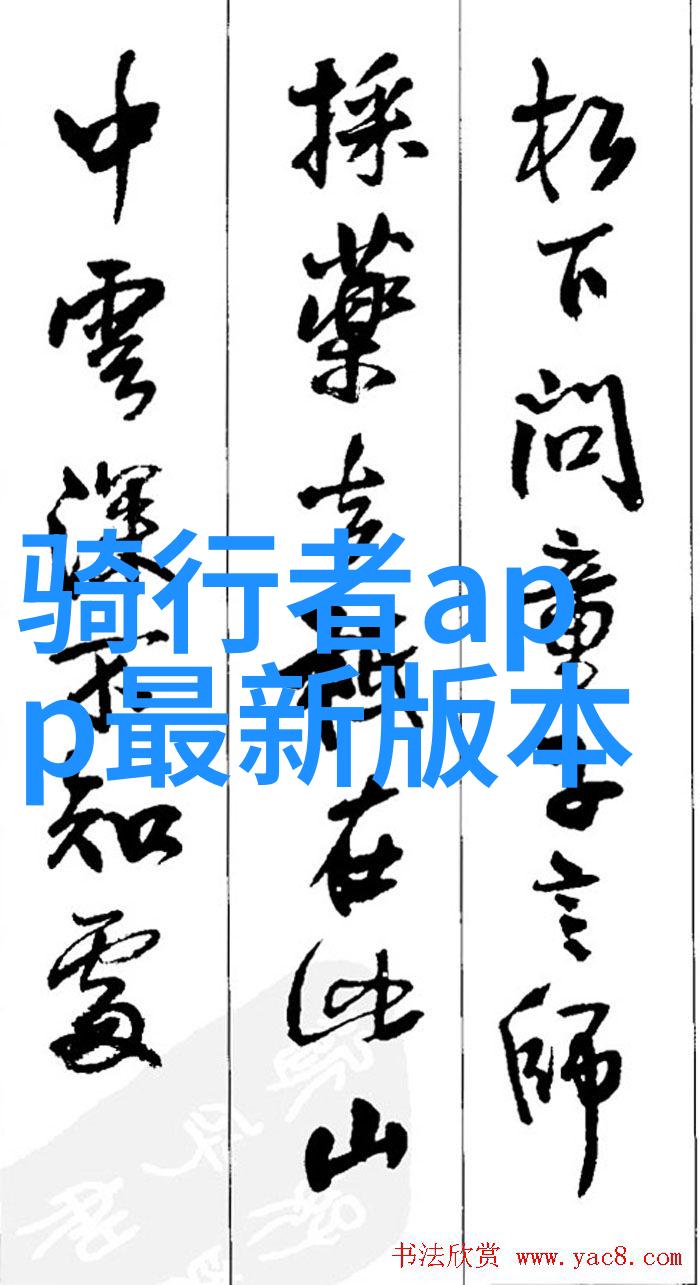 松下問童子言師
採藥去在此山
中雲深不知處
骑行者ap
p最新版本
书法欣赏 www.yac8.com